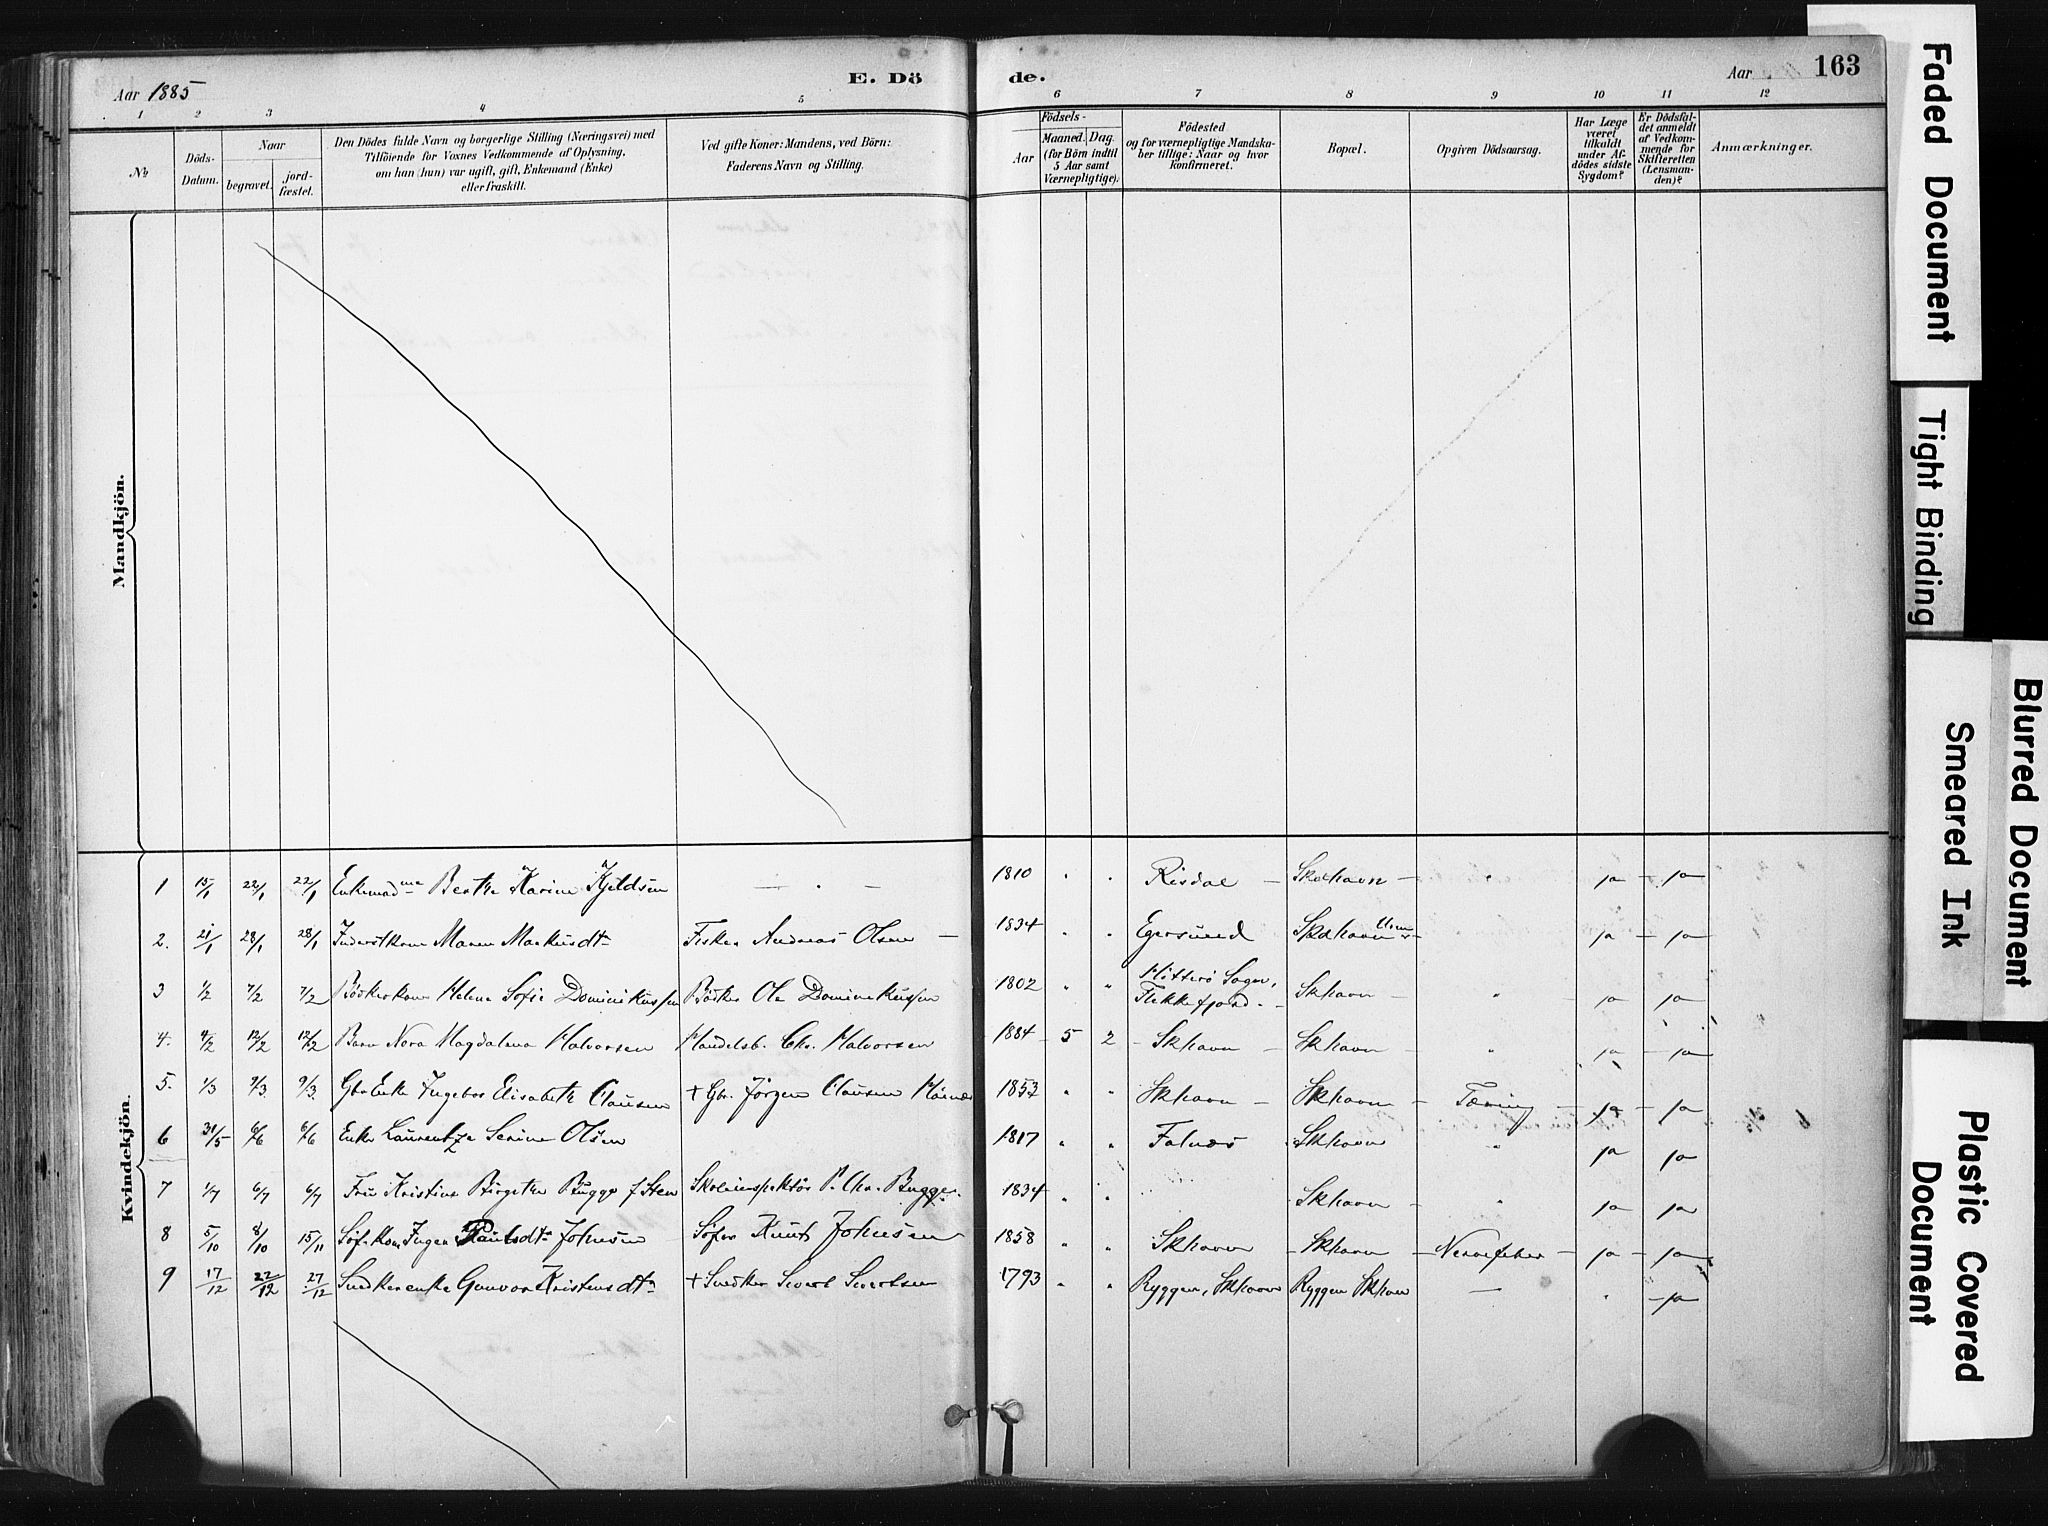 Aar 1885
E. Dö
de.
Aar
163
1 2 3 4 5 6 7 8 9 10 11 12
No
Döds-
Datum.
Naar
begravet.
jord-
fæstet.
Den Dödes fulde Navn og borgerlige Stilling (Næringsvei) med
Tilföiende for Voxnes Vedkommende af Oplysning,
om han (hun) var ugift, gift, Enkemand (Enke)
eller fraskilt.
Ved gifte Koner: Mandens, ved Börn:
Faderens Navn og Stilling.
Födsels-
Aar
Maaned. Dag.
(for Börn indtil
5 Aar samt
Værnepligtige).
Födested
og for værnepligtige Mandska-
ber tillige: Naar og hvor
konfirmeret.
Bopæl.
Opgiven Dödsaarsag.
Har Læge
været
tilkaldt
under Af-
dödes sidste
Sygdom?
Er Dödsfal-
det anmeldt
af Vedkom-
mende for
Skifteretten
(Lensman-
den)?
Anmærkninger.
Mandkjön.
Kvindekjön.
1 15/1 22/1 22/1 Enkemadme Berthe Karine Kjeldsen — . — 1810 . . Risdal — Skhavn — " ja — ja
2. 21/1 28/1 28/1 Maren Markusdtr Fisker Andreas Olsen — 1834 . . Egersund Skhavn — " ja — ja
3 1/2 7/2 7/2 Bödkerkone Helene Sofie Dominikussen Bödker Ole Dominikussen 1802 " " Hitterö Sogn, Flekkefjord. — Skhavn — " ja — ja
4. 4/2 12/2 12/2 Barn Nora Magdalena Halvorsen Handelsb. Chr. Halvorsen 1884 5 2 — Skhavn — Skhavn — " ja — ja
5. 1/3 9/3 9/3 Gbr Enke Ingebor Elisabeth Clausen + Gbr. Jörgen Clausen 1853 " " Skhavn — Skhavn — Tæring — ja — ja
6 31/5 6/6 6/6 Enke Laurentze Serine Olsen 1817 " " Falnæs Skhavn " ja ja
7 1/7 6/7 6/7 Fru Kristine Birgithe Bugge f. Sten Skoleinspektör P. Chr. Bugge. 1834 " " Skhavn — " ja — ja
8 5/10 8/10 15/11 Söf. Kone Inger Paulsdtr Johnsen Söfar Knut Johnsen 1858 " " Skhavn — Skhavn — Nervefeber — ja — ja
9 17/12 22/12 27/12 Snedkerenke Gunvor Kristensdtr + Snedker Sivert Sivertsen 1793 " " Ryggen, Skhavn Ryggen Skhavn — " — ja
Faded Document
Tight Binding
Blurred Document
Smeared Ink
Plastic Covered
Document